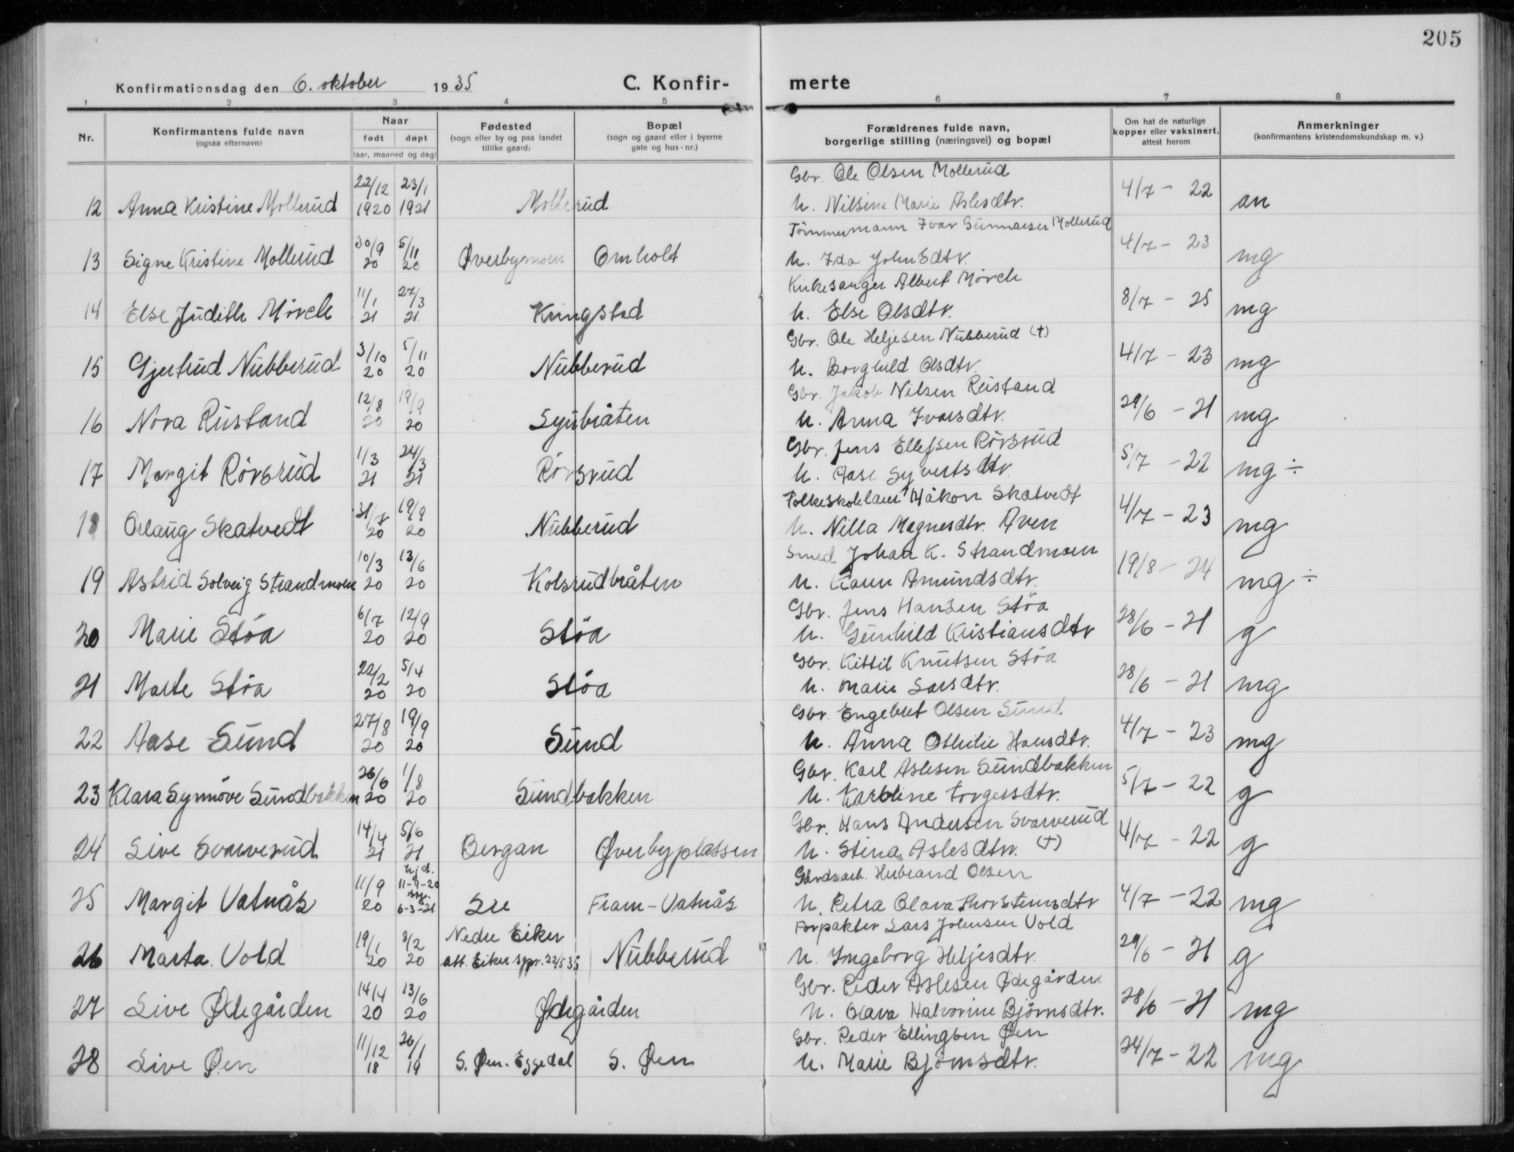 205
Konfirmationsdag den 6. oktober 1935 C. Konfirmerte
1 2 3 4 5 6 7 8
Nr. Konfirmantens fulde navn (ogsaa efternavn) Naar født døpt (aar, maaned og dag) Fødested (sogn eller by og paa landet tillike gaard) Bopæl (sogn og gaard eller i byerne gate og hus-nr.) Forældrenes fulde navn, borgerlige stilling (næringsvei) og bopæl Om hat de naturlige kopper eller vaksinert, attest herom Anmerkninger (konfirmantens kristendomskundskap m. v.)
12 Anna Kristine Mollerud 22/12 1920 23/1 1921 Mollerud Gbr. Ole Olsen Mollerud u. Nilsine Marie Aslesdtr. 4/7 - 22 an
13 Signe Kristine Mollerud 30/9 20 5/11 20 Øverbymoen Omholt Tømmermann Ivar Gunnarsen Mollerud u. Ida Johnsdtr. 4/7 - 23 mg
14 Else Judith Mørch 11/1 21 27/3 21 Kringstad Kirkesanger Albert Mørch u. Else Olsdtr. 8/7 - 25 mg
15 Gjertrud Nubberud 3/10 20 5/11 20 Nubberud Gbr. Ole Heljesen Nubberud (†) u. Borghild Olsdtr. 4/7 - 23 mg
16 Nora Ristand 12/8 20 19/9 20 Sysibråten Gbr. Jakob Nilsen Ristand u. Anna Ivarsdtr. 29/6 - 21 mg
17 Margit Rørsrud 1/3 21 24/3 21 Rørsrud Gbr. Jens Ellefsen Rørsrud u. Aase Syvertsdtr. 5/7 - 22 mg ÷
18 Orlaug Skatvedt 31/7 20 19/9 20 Nubberud Folkeskolelærer Håkon Skatvedt u. Nilla Magnesdtr. Aven 4/7 - 23 mg
19 Astrid Solveig Strandmoen 10/3 20 13/6 20 Kolsrudbråten Smed Johan K. Strandmoen u. Karen Amundsdtr. 19/8 - 24 mg ÷
20 Marie Støa 6/7 20 12/9 20 Støa Gbr. Jens Hansen Støa u. Gunhild Kristiansdtr 28/6 - 21 g
21 Marte Støa 22/2 20 5/4 20 Støa Gbr. Kittil Knutsen Støa u. Marie Larsdtr. 28/6 - 21 mg
22 Aase Sund 27/8 20 19/9 20 Sund Gbr. Engebret Olsen Sund u. Anna Othilie Hansdtr. 4/7 - 23 mg
23 Klara Synnøve Sundbakken 26/6 20 1/8 20 Sundbakken Gbr. Karl Aslesen Sundbakken u. Karoline Torgersdtr. 5/7 - 22 g
24 Live Svarverud 14/4 21 5/6 21 Bergan Øverbyplassen Gbr. Hans Andersen Svarverud u. Stena Aslesdtr. (†) 4/7 - 22 g
25 Margit Vatnås 11/9 20 hj.d. 11-9-20 6-3-21 Lie Fram-Vatnås Gårdsarb. Hubrand Olsen u. Petra Olava Thorsteinsdtr 4/7 - 22 mg
26 Marta Vold 19/1 20 8/2 20 Nedre Eiker att. Eiker spr. 22/5 35 Nubberud Forpakter Lars Johnsen Vold u. Ingeborg Heljesdtr. 29/6 - 21 g
27 Live Ødegården 14/4 20 13/6 20 Ødegården Gbr. Peder Aslesen Ødegården u. Olava Halvorine Bjørnsdtr. 28/6 - 21 mg
28 Live Øen 11/12 18 26/1 19 S. Øen. Eggedal S. Øen Gbr. Peder Ellingsen Øen u. Marie Bjørnsdtr. 24/7 - 22 mg